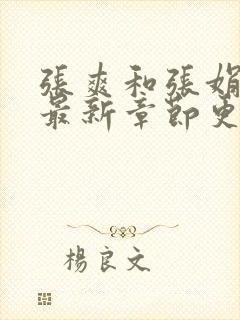 張爽和張娟
最新章節史
楊良文